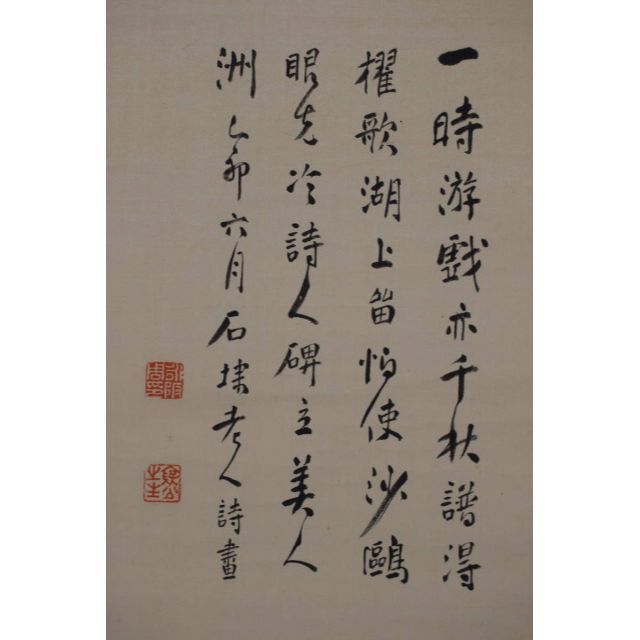 一時游戲亦千秋譜得
櫂歌湖上留怕使沙鷗
眼先冷詩人碑立美人
洲乙卯六月石埭老人詩畫